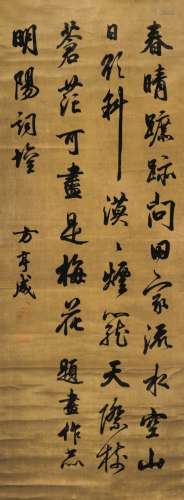 春晴蹤跡問田家流水空山
日欲斜漠漠煙籠天際樹
蒼茫可盡是梅花 題畫作忘
明陽詞壇 方亨咸